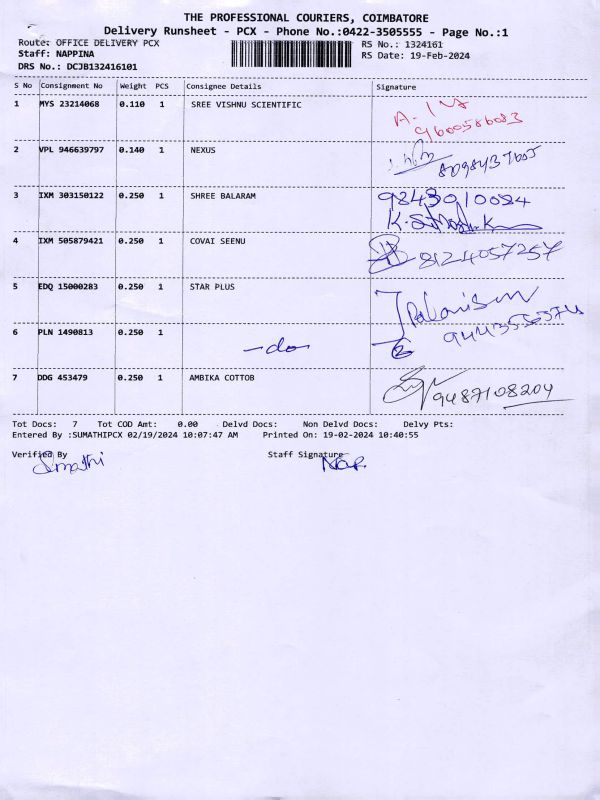 THE PROFESSIONAL COURIERS, COIMBATORE
Delivery Runsheet - PCX - Phone No.:0422-3505555 - Page No.:1
Route: OFFICE DELIVERY PCX RS No.: 1324161
Staff: NAPPINA RS Date: 19-Feb-2024
DRS No.: DCJB132416101
S No Consignment No Weight PCS Consignee Details Signature
1 MYS 23214068 0.110 1 SREE VISHNU SCIENTIFIC
9600586083
2 VPL 946639797 0.140 1 NEXUS
3 IXM 303150122 0.250 1 SHREE BALARAM 9843010084
4 IXM 505879421 0.250 1 COVAI SEENU 8124057257
5 EDQ 15000283 0.250 1 STAR PLUS
6 PLN 1490813 0.250 1 -do-
7 DDG 453479 0.250 1 AMBIKA COTTOB 9487108204
Tot Docs: 7 Tot COD Amt: 0.00 Delvd Docs: Non Delvd Docs: Delvy Pts:
Entered By :SUMATHIPCX 02/19/2024 10:07:47 AM Printed On: 19-02-2024 10:40:55
Verified By Staff Signature
Sumathi